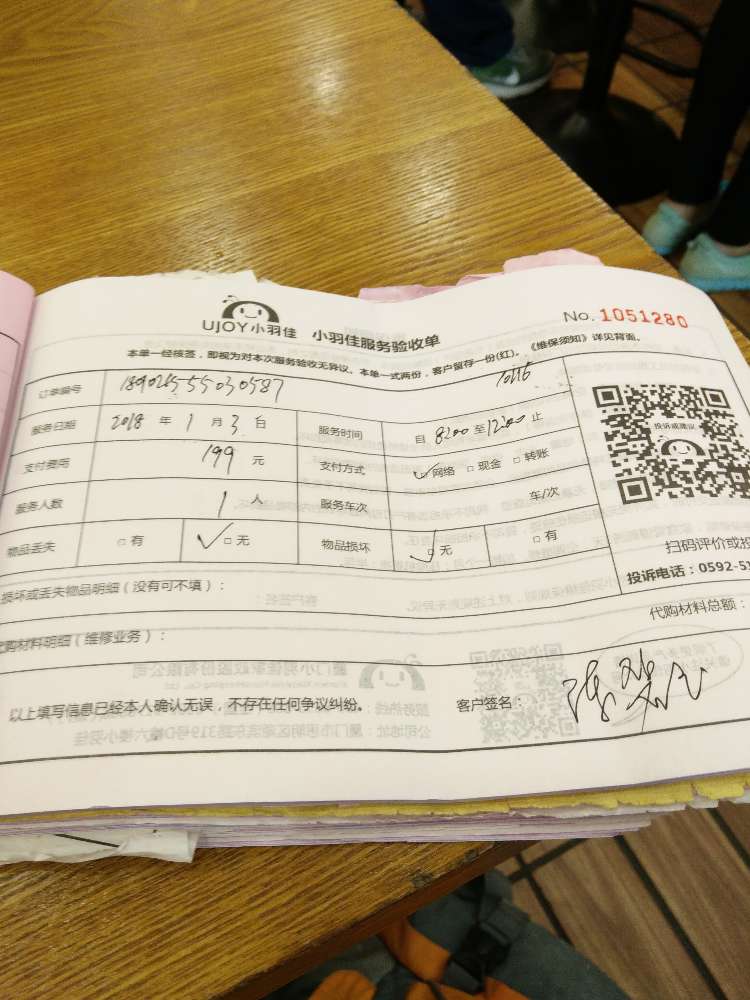 UJOY小羽佳 小羽佳服务验收单 No. 1051280
本单一经核签，即视为对本次服务验收无异议。本单一式两份，客户留存一份(红)。《维保须知》详见背面。
订单编号 1890285555030587 10116
服务日期 2018 年 1 月 3 日 服务时间 自 8:00 至 12:00 止
支付费用 199 元 支付方式 □网络 □现金 □转账
服务人数 1 人 服务车次 车/次
物品丢失 □有 □无 物品损坏 □无 □有
投诉或建议
扫码评价或投
损坏或丢失物品明细（没有可不填）： 投诉电话：0592-51
代购材料明细（维修业务）： 代购材料总额：
以上填写信息已经本人确认无误，不存在任何争议纠纷。 客户签名：